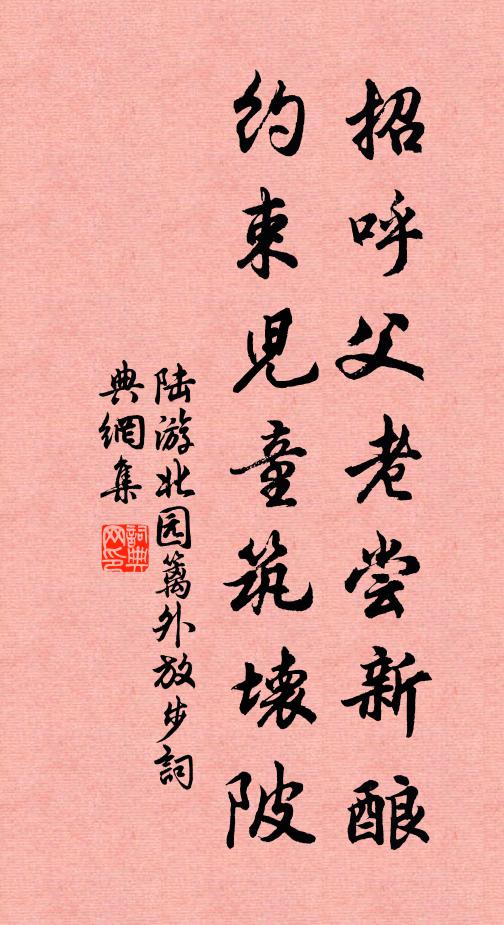 招呼父老尝新酿
约束兒童筑壊陂
陆游北园篱外放步詞
典網集
詞典网印